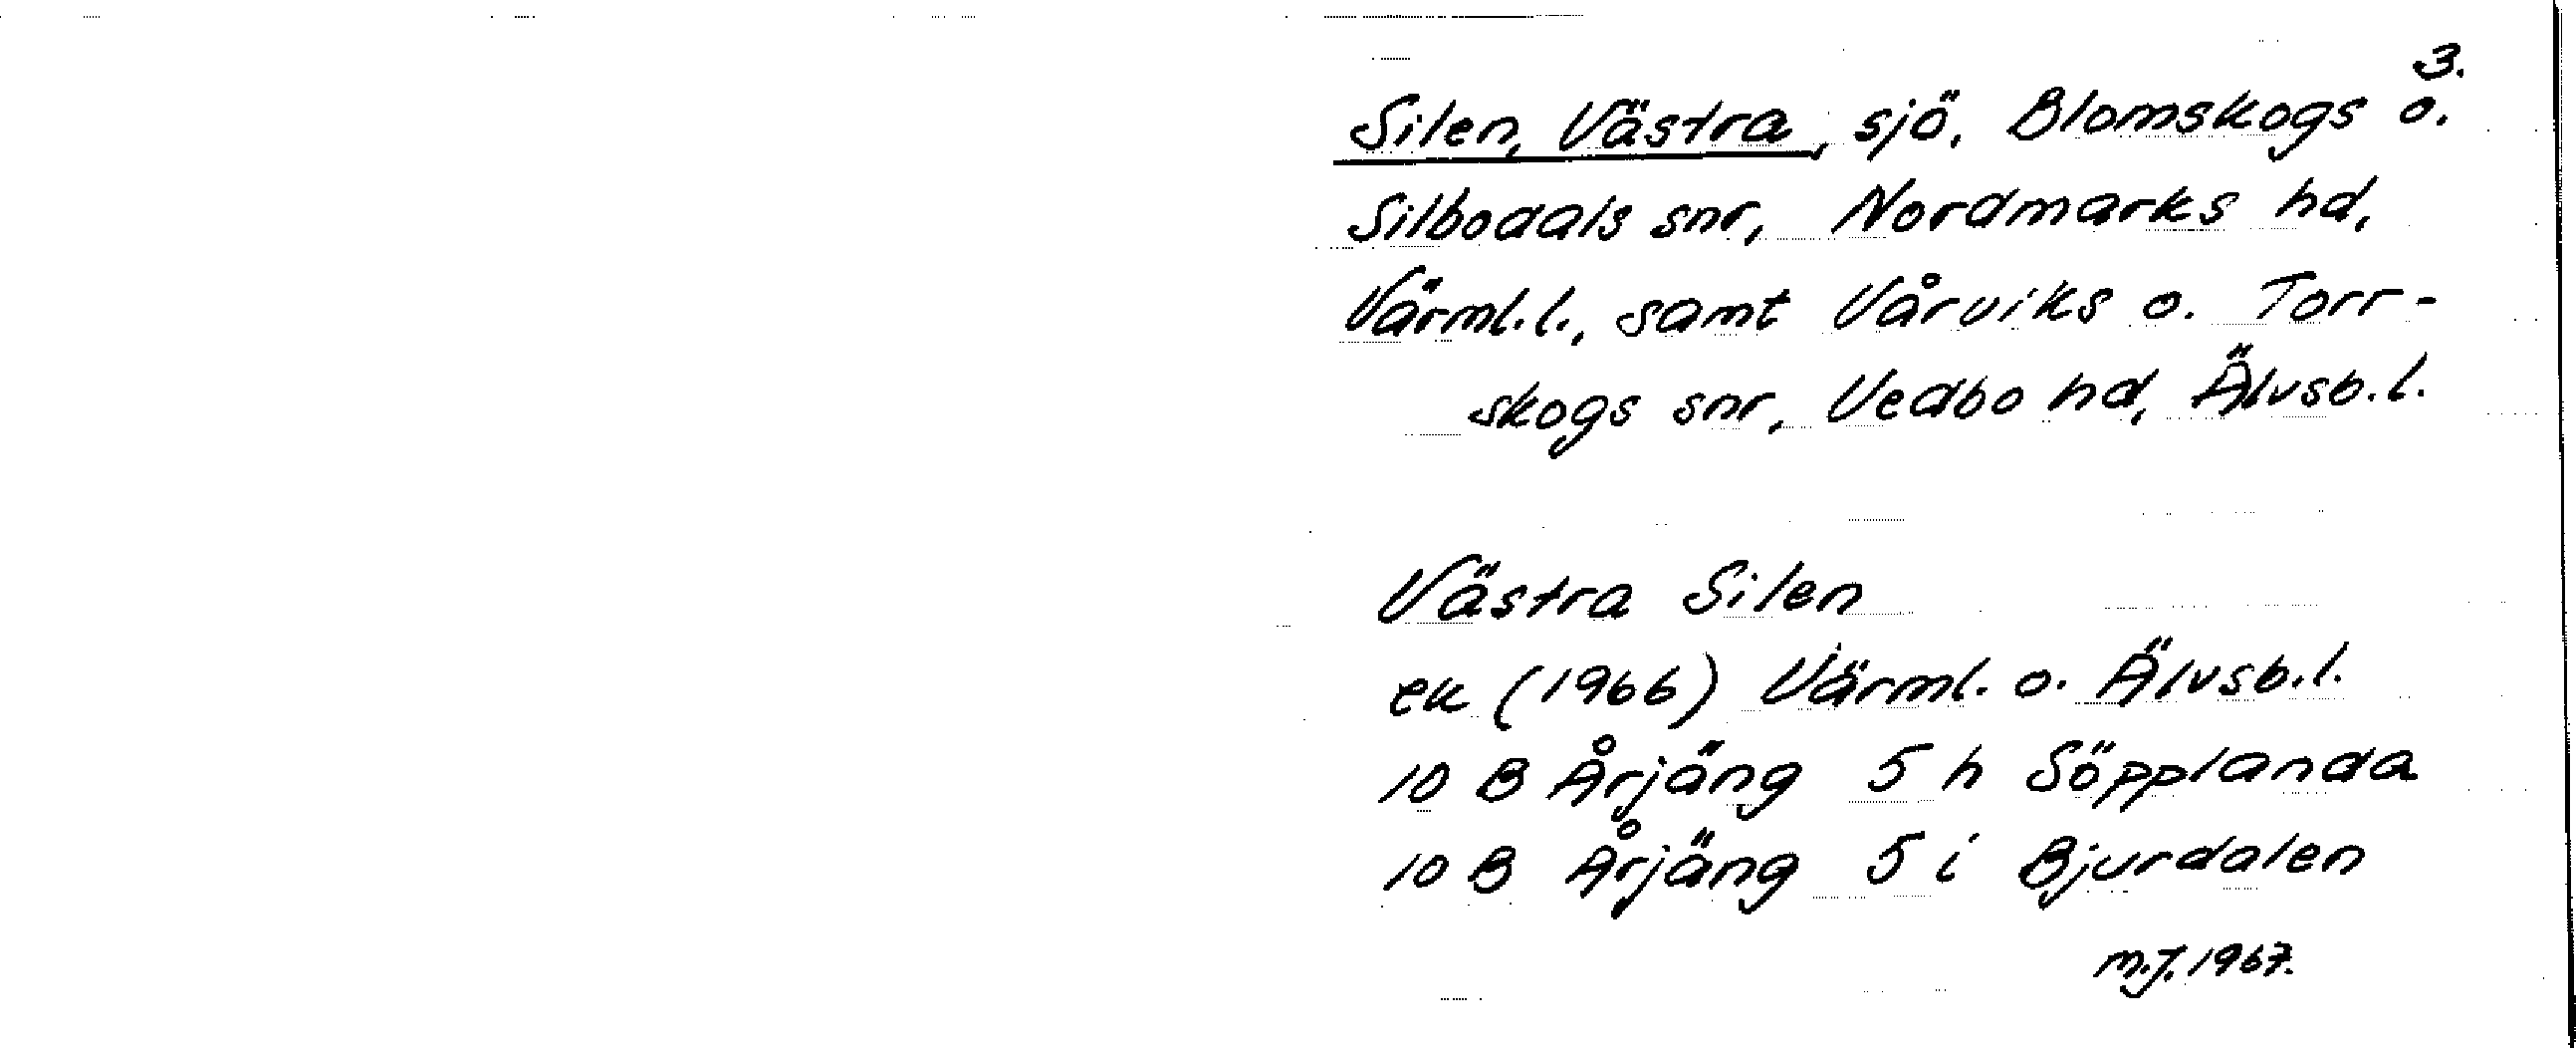 3.
Silen, Västra, sjö, Blomskogs o.
Silbodals snr, Nordmarks hd,
Värml.l., samt Vårviks o. Torr-
skogs snr, Vedbo hd, Älvsb.l.
Västra Silen
ek (1966) Värml. o. Älvsb.l.
10 B Årjäng 5 h Söpplanda
10 B Årjäng 5 i Bjurdalen
M.J. 1967.